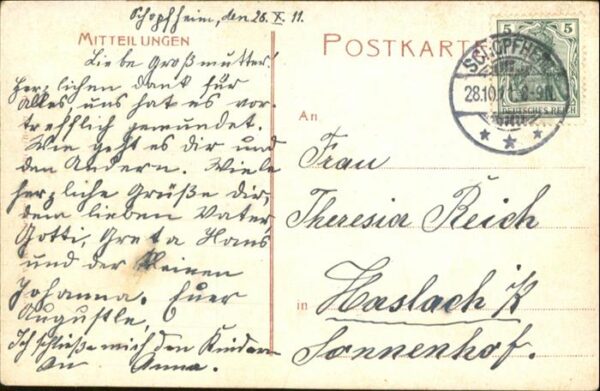 Schopfheim, den 26. X. 11.
MITTEILUNGEN
POSTKARTE
5 5
DEUTSCHES REICH
SCHOPFHEIM
28.10.11. 8-9N.
Liebe Großmutter!
herzlichen dank für
alles, uns hat es vor-
trefflich gemundet.
Wie geht es dir und
den Andern. Viele
herzliche Grüße dir,
dem lieben Vater,
Gotti, Greta Hans
und der kleinen
Johanna. Euer
Augustle,
Ich schließe mich den Kindern
an Anna.
An
Frau
Theresia Reich
in Haslach i/K
Sonnenhof.